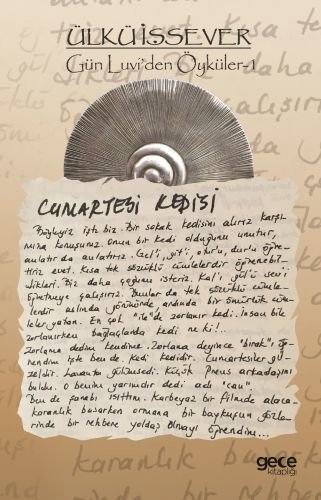 ÜLKÜ İSSEVER
Gün Luvi'den Öyküler-1
CUMARTESİ KEDİSİ
Böyleyiz işte biz. Bir sokak kedisini alırız karşı-
mıza konuşuruz. Onun bir kedi olduğunu unutur,
anlatır da anlatırız. Gel'i, git'i, otur'u, dur'u öğre-
tiriz evet. Kısa tek sözcüklü cümlelerdir öğrenebil-
dikleri. Biz daha çoğunu isteriz. Kal'ı gül'ü sev'i
öğretmeye çalışırız. Bunlar da tek sözcüklü cümle-
lerdir aslında görünürde ardında bir ömürlük cüm-
leler yatan. En çok "ile"de zorlanır kedi. İnsan bile
zorlanırken bağlaçlarda kedi ne ki!..
Zorlama dedim kendime. Zorlama deyince "bırak"ı öğ-
rendim işte ben de. Kedi kedidir. Cumartesiler gü-
zeldir. Lavanta gülümsedi. Küçük Prens arkadaşını
buldu. O benim yarımdır dedi adı "can".
Ben de sarabı ısıttım. Karbeyaz bir filmde alaca-
karanlık basarken ormana bir baykuşun gözle-
rinde bir rehbere yoldaş olmayı öğrendim...
gece
kitaplığı
karanlık